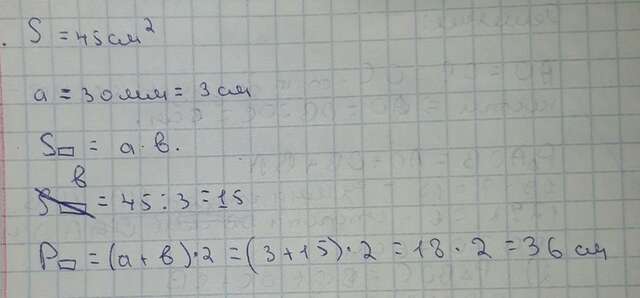 S = 45 см²
а = 30 мм = 3 см
S▭ = а · в.
в = 45 : 3 = 15
P▭ = (а + в) · 2 = (3 + 15) · 2 = 18 · 2 = 36 см